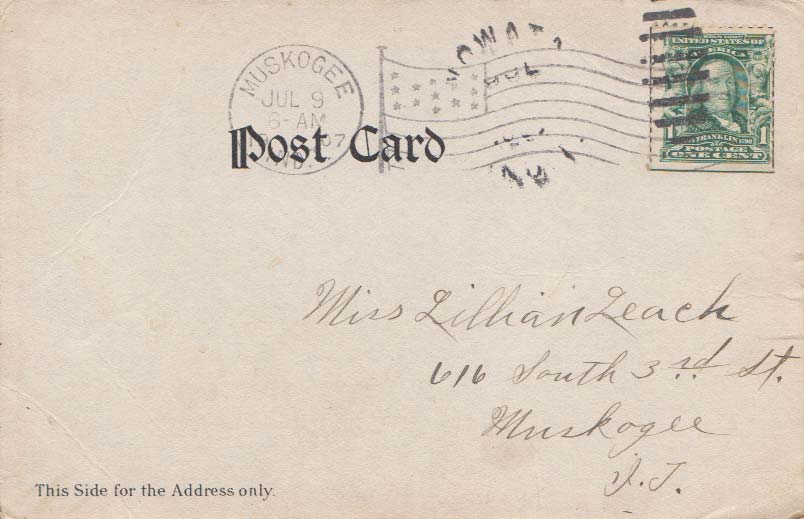 MUSKOGEE
JUL 9
6-AM
07
IND.
NOWATA
JUL
UNITED STATES OF
AMERICA
FRANKLIN
1 1
POSTAGE
ONE CENT
Post Card
Miss Lillian Leach
616 South 3rd St.
Muskogee
I.T.
This Side for the Address only.